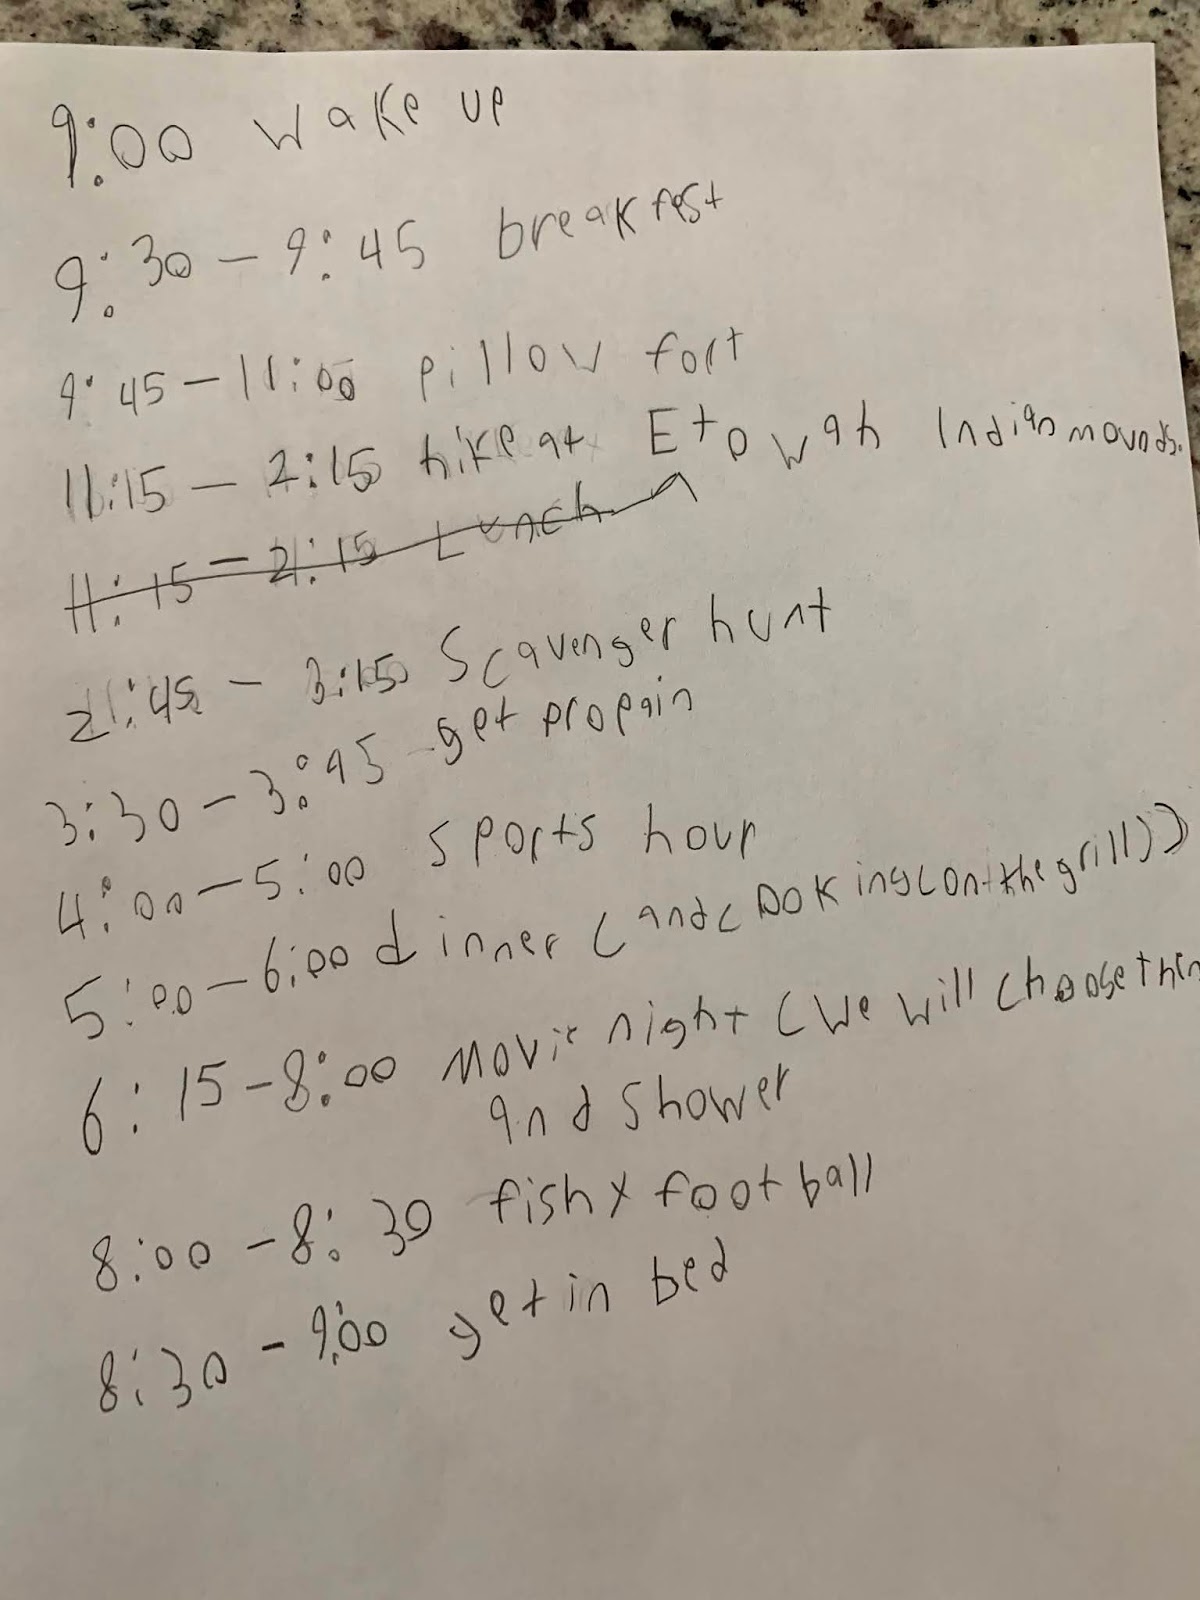 9:00 wake up
9:30 - 9:45 breakfest
9:45 - 11:00 pillow fort
11:15 - 2:15 hike at Etowah Indian mounds.
11:15 - 2:15 Lunch
2:45 - 3:15 Scavenger hunt
3:30 - 3:45 get propain
4:00 - 5:00 sports hour
5:00 - 6:00 dinner (and cooking (on the grill))
6:15 - 8:00 movie night (we will choose then
and shower
8:00 - 8:30 fish x football
8:30 - 9:00 get in bed